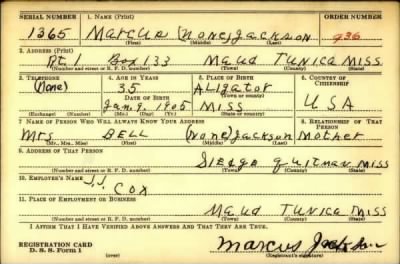 SERIAL NUMBER 1. NAME (Print) ORDER NUMBER
1365 Marcus (None) Jackson 936
(First) (Middle) (Last)
2. ADDRESS (Print)
Rt. 1 Box 133 Maud Tunica Miss
(Number and street or R. F. D. number) (Town) (County) (State)
3. TELEPHONE 4. AGE IN YEARS 5. PLACE OF BIRTH 6. COUNTRY OF CITIZENSHIP
(None) 35 Aligator
DATE OF BIRTH (Town or county)
Jan. 9. 1905 Miss USA
(Exchange) (Number) (Mo.) (Day) (Yr.) (State or country)
7. NAME OF PERSON WHO WILL ALWAYS KNOW YOUR ADDRESS 8. RELATIONSHIP OF THAT PERSON
Mrs Bell (None) Jackson Mother
(Mr., Mrs., Miss) (First) (Middle) (Last)
9. ADDRESS OF THAT PERSON
Sledge Quitman Miss
(Number and street or R. F. D. number) (Town) (County) (State)
10. EMPLOYER'S NAME
J. J. Cox
11. PLACE OF EMPLOYMENT OR BUSINESS
Maud Tunica Miss
(Number and street or R. F. D. number) (Town) (County) (State)
I AFFIRM THAT I HAVE VERIFIED ABOVE ANSWERS AND THAT THEY ARE TRUE.
REGISTRATION CARD
D. S. S. Form 1 Marcus Jackson
(Registrant's signature)